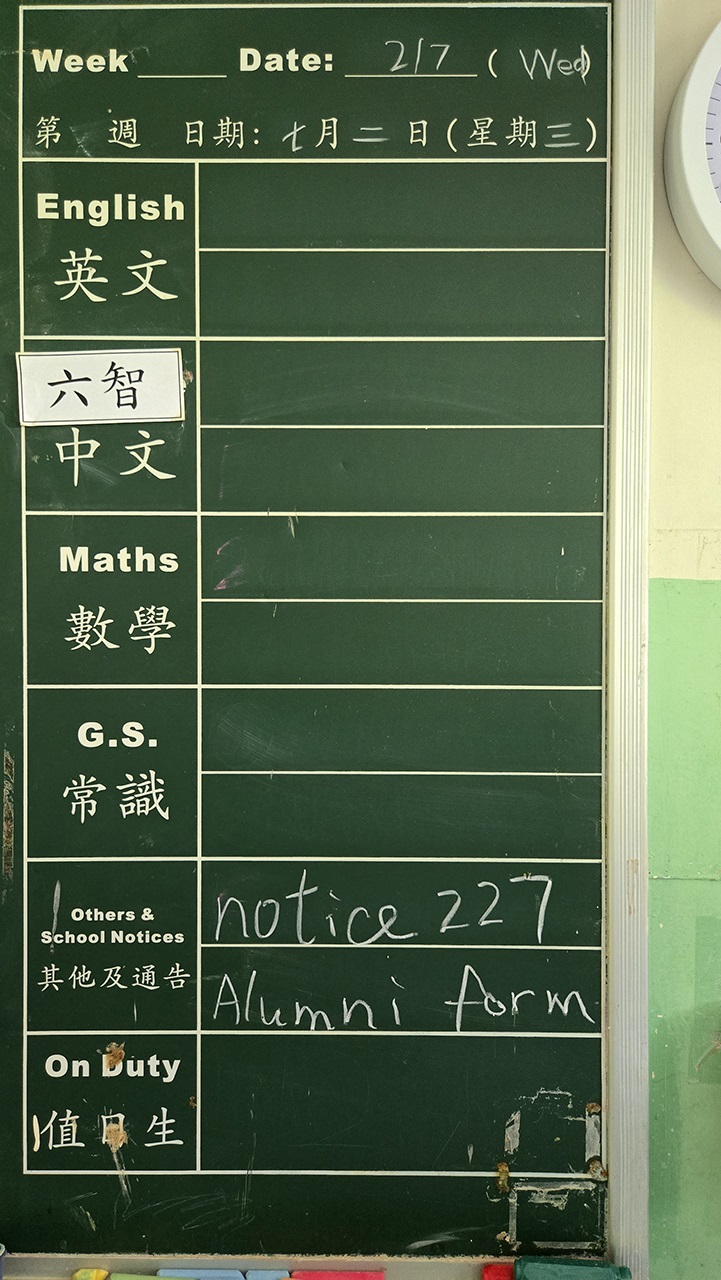 Week Date: 2/7 (Wed)
第 週 日期: 七月二日(星期三)
English
英文
六智
中文
Maths
數學
G.S.
常識
Others &
School Notices
其他及通告
notice 227
Alumni form
On Duty
值日生